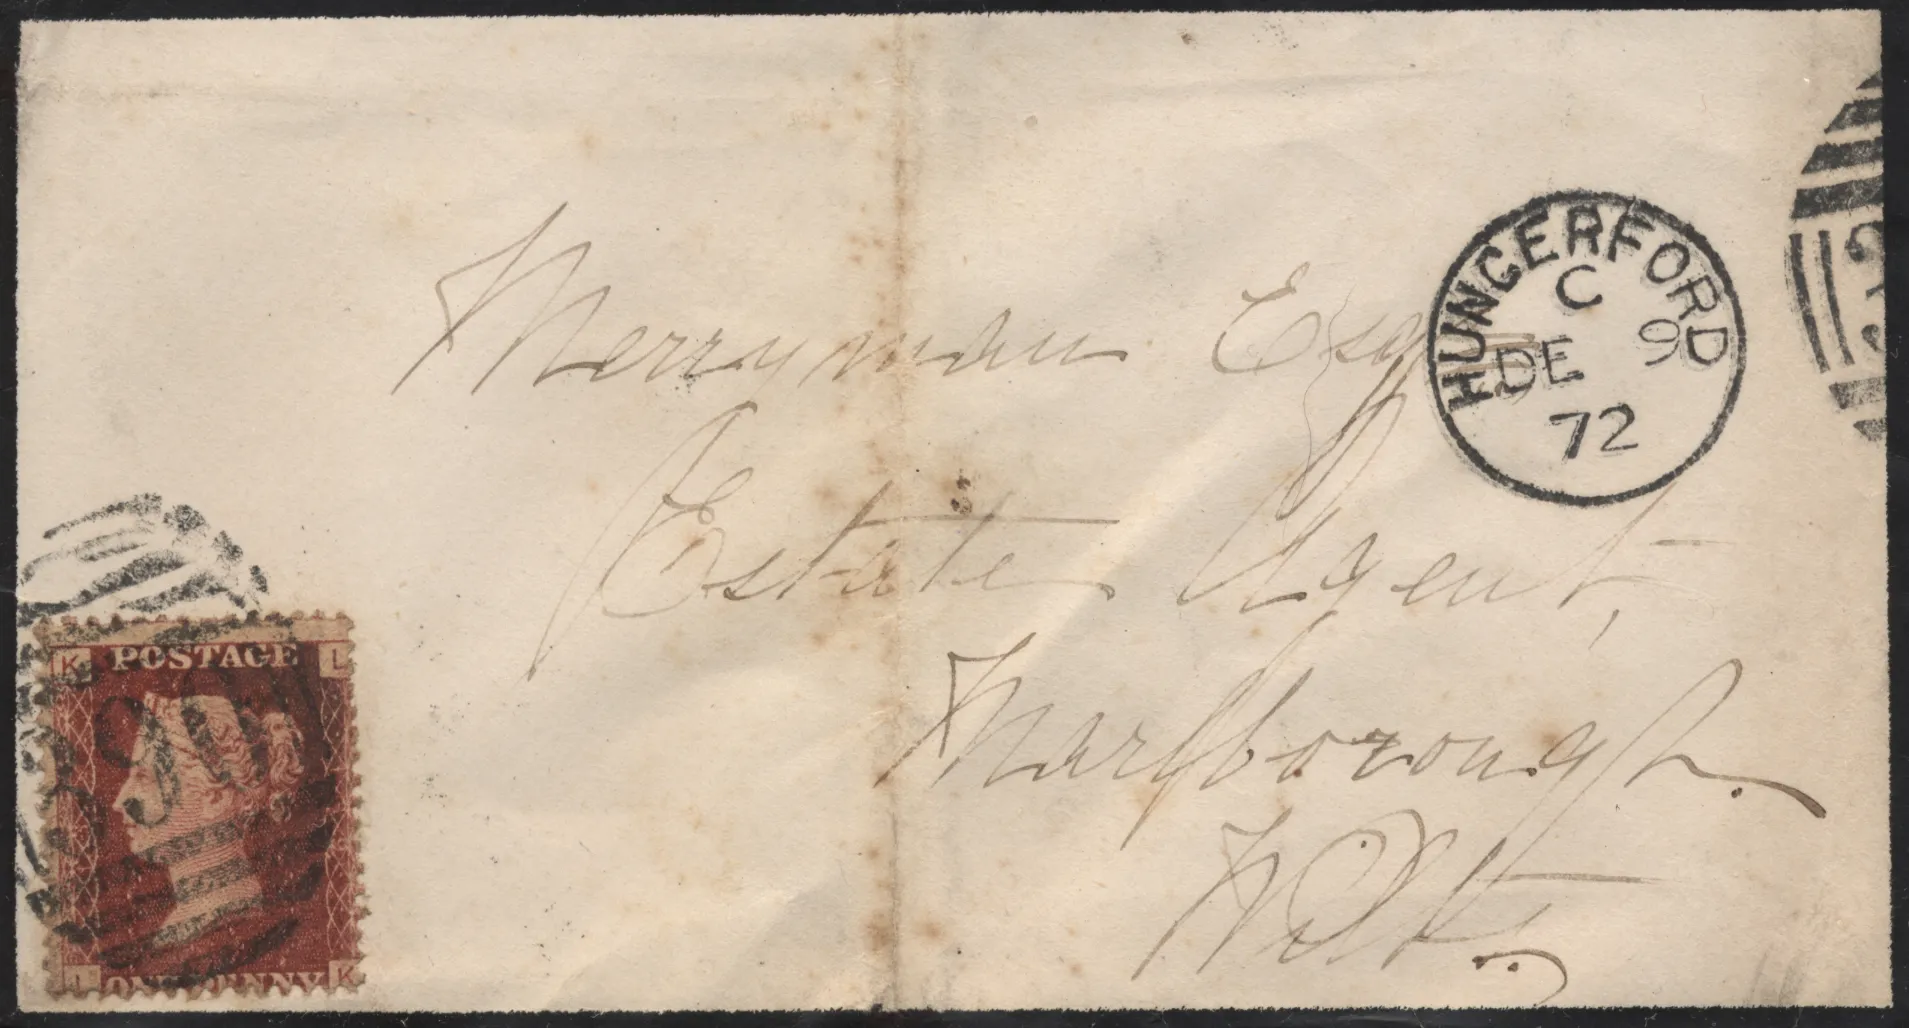 HUNGERFORD
C
DE 9
72
Merryman Esq
Estate Agent,
Marlborough.
Wilts.
K POSTAGE L
390
L ONE PENNY K